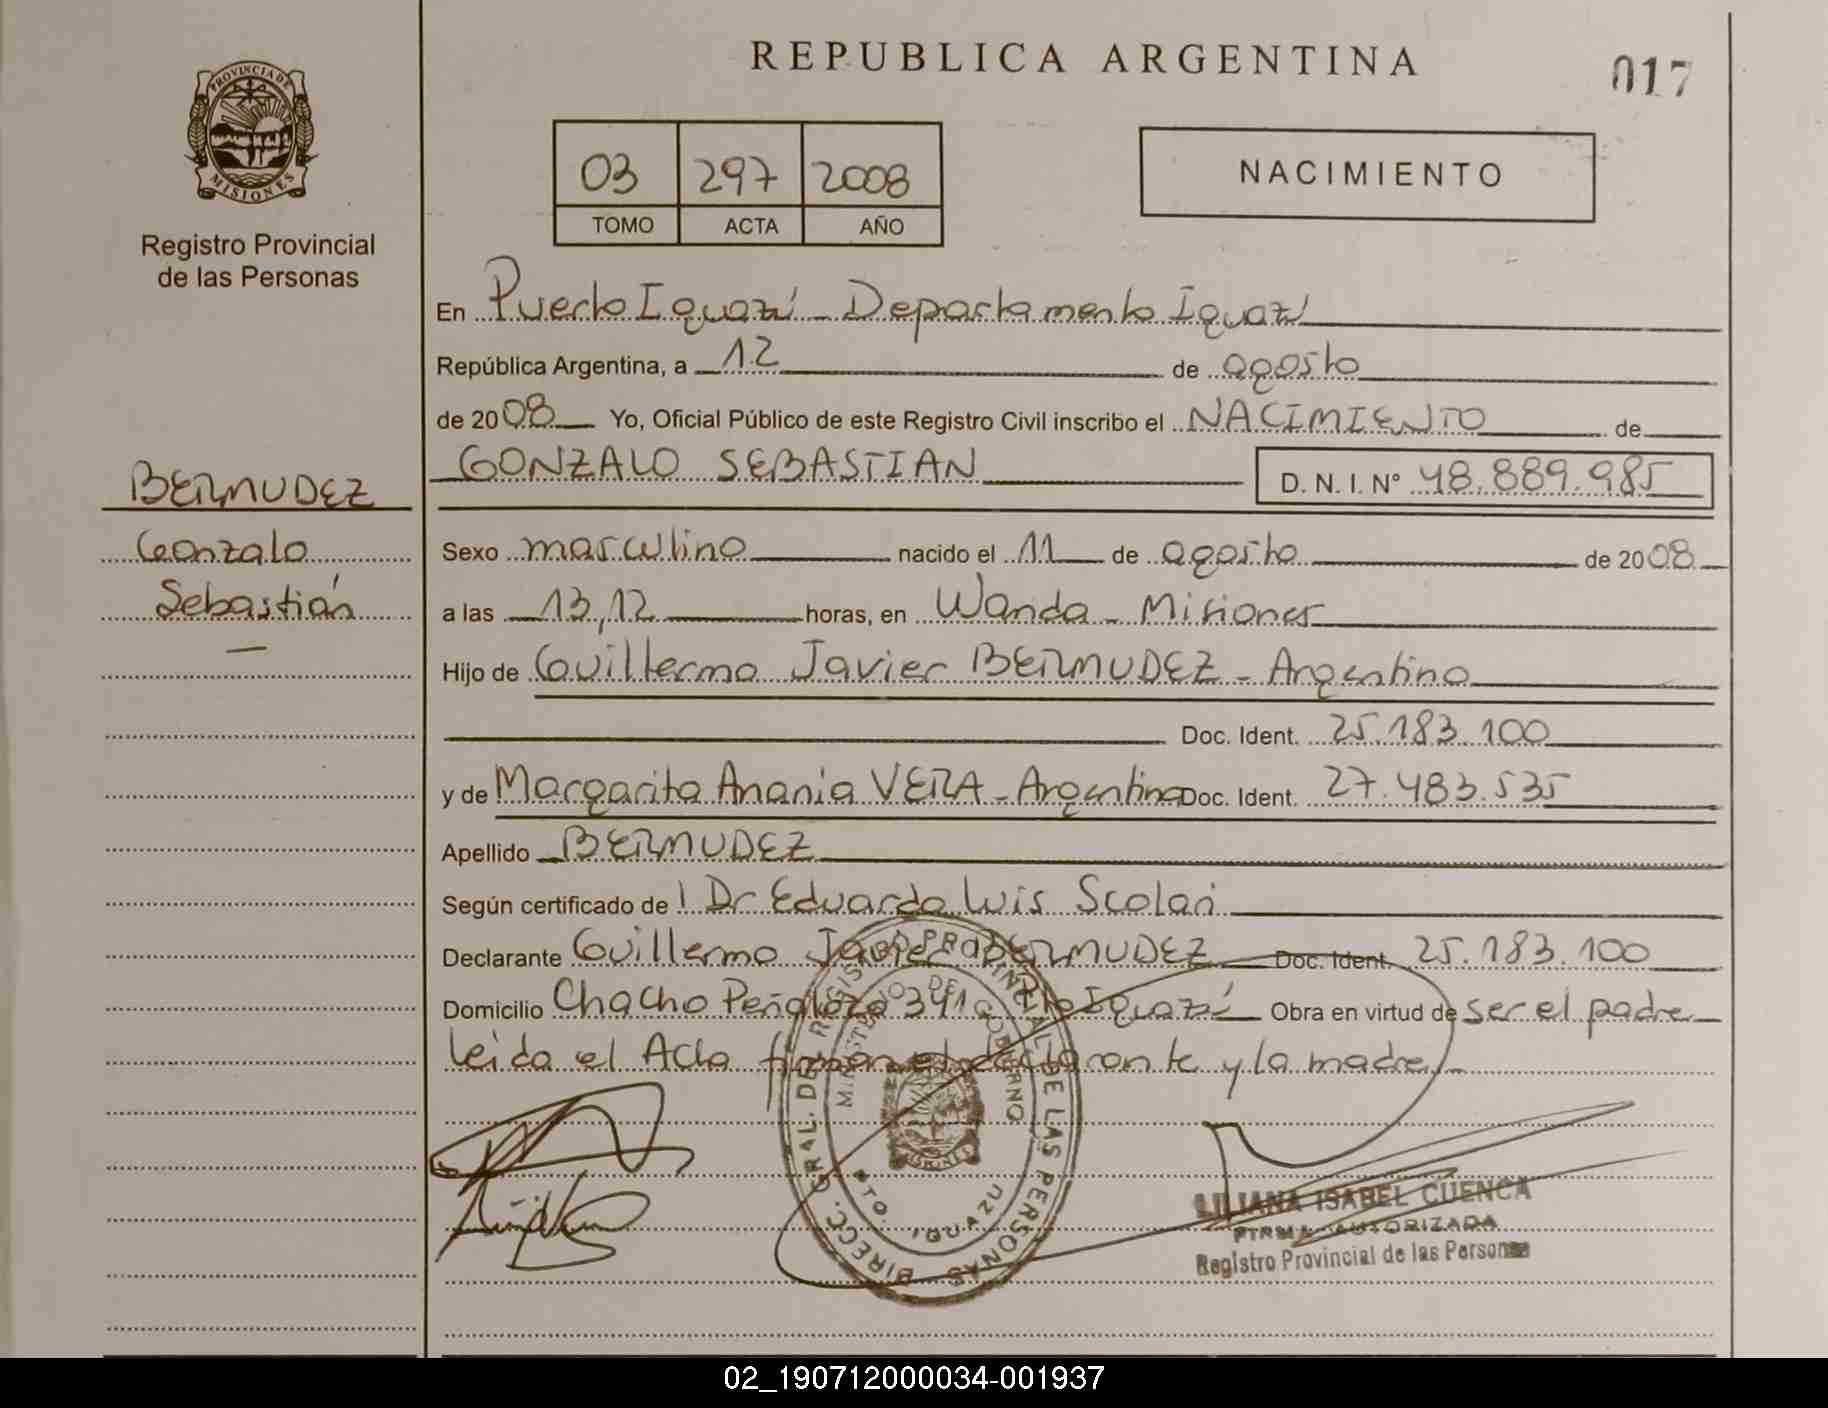 REPUBLICA ARGENTINA
017
PROVINCIA DE
MISIONES
Registro Provincial
de las Personas
03 297 2008
TOMO ACTA AÑO
NACIMIENTO
En Puerto Iguazú - Departamento Iguazú
República Argentina, a 12 de agosto
de 2008 Yo, Oficial Público de este Registro Civil inscribo el NACIMIENTO de
GONZALO SEBASTIAN D. N. I. N° 48.889.985
BERMUDEZ
Gonzalo
Sebastián
Sexo masculino nacido el 11 de agosto de 2008
a las 13,12 horas, en Wanda - Misiones
Hijo de Guillermo Javier BERMUDEZ - Argentino
Doc. Ident. 25.183.100
y de Margarita Anania VERA - Argentina Doc. Ident. 27.483.535
Apellido BERMUDEZ
Según certificado de l Dr Eduardo Luis Scolari
Declarante Guillermo Javier BERMUDEZ Doc. Ident. 25.183.100
Domicilio Chacho Peñaloza 341 Pto Iguazú Obra en virtud de ser el padre
leida el Acta firman el declarante y la madre
DIRECC. GRAL. DEL REGISTRO PROVINCIAL DE LAS PERSONAS
MINISTERIO DE GOBIERNO
MISIONES
PTO. IGUAZU
LILIANA ISABEL CUENCA
FIRMA AUTORIZADA
Registro Provincial de las Personas
02_190712000034-001937